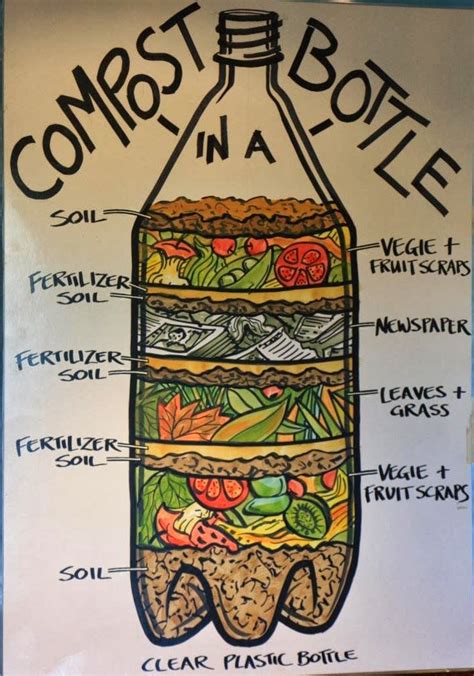 COMPOST
IN A
BOTTLE
SOIL
VEGIE +
FRUIT SCRAPS
FERTILIZER
SOIL
NEWSPAPER
FERTILIZER
SOIL
LEAVES +
GRASS
FERTILIZER
SOIL
VEGIE +
FRUIT SCRAPS
SOIL
CLEAR PLASTIC BOTTLE